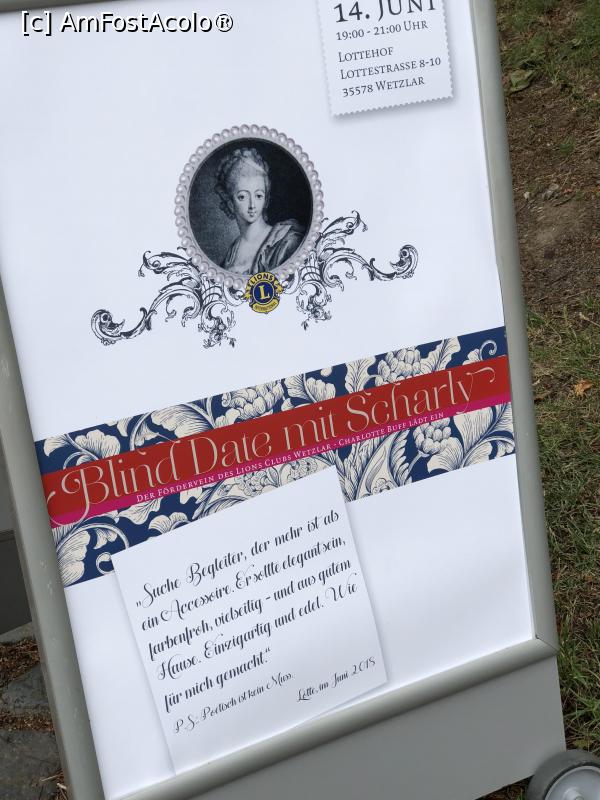 [c] AmFostAcolo®
14. Juni
19:00 - 21:00 Uhr
Lottehof
Lottestrasse 8-10
35578 Wetzlar
LIONS
L
INTERNATIONAL
Blind Date mit Scharly
Der Förderverein des Lions Clubs Wetzlar - Charlotte Buff lädt ein
„Suche Begleiter, der mehr ist als
ein Accessoire. Er sollte elegant sein,
farbenfroh, vielseitig - und aus gutem
Hause. Einzigartig und edel. Wie
für mich gemacht.“
P.S.: Poetisch ist kein Muss.
Lotte, im Juni 2018